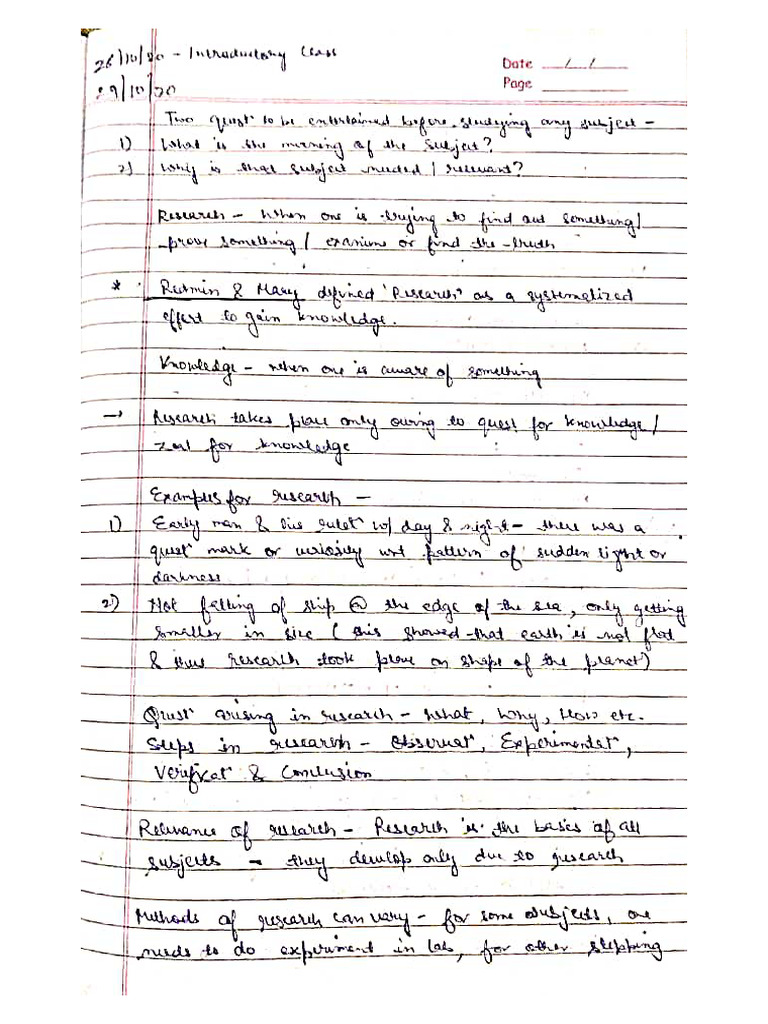 26/10/20 - Introductory Class
Date / /
Page
29/10/20
Two quest to be entertained before studying any subject -
1) What is the meaning of the subject?
2) Why is that subject needed / relevant?
Research - When one is trying to find out something /
prove something / examine or find the truth
* & Mary defined 'Research' as a systematized
effort to gain knowledge.
Knowledge - when one is aware of something
→ Research takes place only owing to quest for knowledge /
zeal for knowledge
Examples for research -
1) Early man & his w/ day & night - there was a
quest mark or curiosity wrt pattern of sudden light or
darkness
2) Not falling of ship @ the edge of the sea, only getting
smaller in size (this showed that earth is not flat
& thus research took place on shape of the planet)
Quest arising in research - What, Why, How etc.
Steps in research - Observat, Experimentat,
Verificat & Conclusion
Relevance of research - Research is the basis of all
subjects - they develop only due to research
Methods of research can vary - for some subjects, one
needs to do experiment in lab, for other stepping